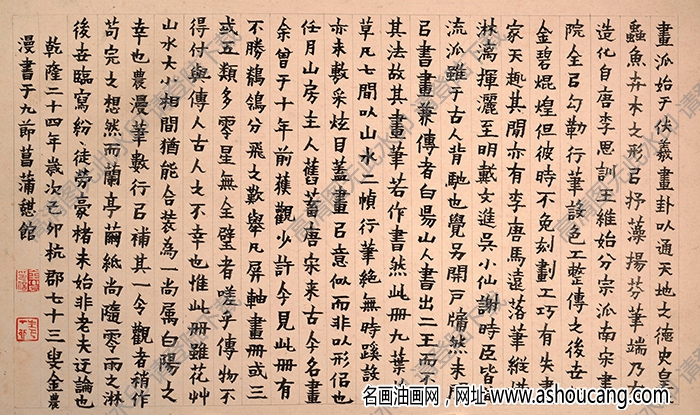 畫派始于伏羲畫卦以通天地之德史皇
蟲魚卉木之形㠯抒藻揚芬筆端乃
造化自唐李思訓王維始分宗派南宋畫
院全㠯勾勒行筆設色工整傳之後世
金碧焜煌但彼時不免刻劃工巧有失畫
家天趣其間亦有李唐馬遠落筆縱
淋漓揮灑至明戴文進吳小仙謝時臣皆
流派雖于古人背馳也覺另開戶牖然未
㠯書畫兼傳者白陽山人書出二王而不
其法故其畫筆若作書然此冊九葉
草凡七間以山水二幀行筆絕無時蹊設
亦未敷采炫目蓋畫㠯意似而非以形侣也
任月山房主人舊蓄唐宋來古今名畫
余曾于十年前獲觀少許今見此冊有
不勝鶺鴒分飛之歎舉凡屏軸畫冊或三
或五類多零星無全璧者嗟乎傳物不
得付與傳人古人之不幸也惟此冊雖花艸
山水大小相間猶能合裝為一尚屬白陽之
幸也農漫筆數行㠯補其一令觀者稍作
苟完之想然而蘭亭繭紙尚隨零雨之淋
後世臨寫紛紛徒勞豪楮未始非老夫迂論也
乾隆二十四年歲次己卯杭郡七十三叟金農
漫書于九節菖蒲憩館
名画油画网，网址:www.ashoucang.com